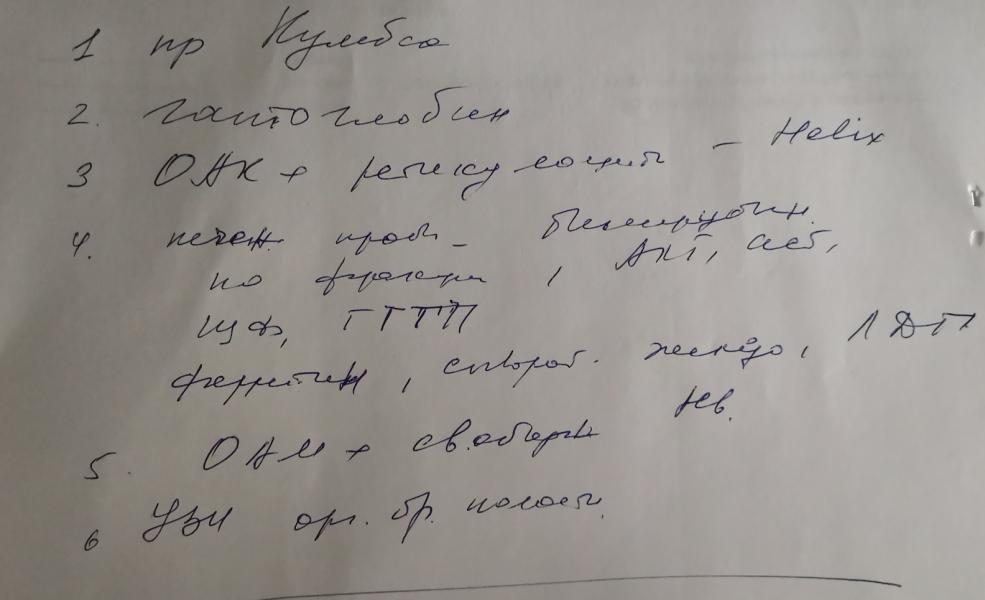 1 пр Кумбса
2. гаптоглобин
3 ОАК + ретикулоциты - Helix
4. печен. пробы - билирубин.
по фракции, АЛТ, АСТ,
ЩФ, ГГТП
ферритин, сыворот. железо, ЛДГ
5. ОАМ + свободн Hb.
6 УЗИ орг. бр. полости.